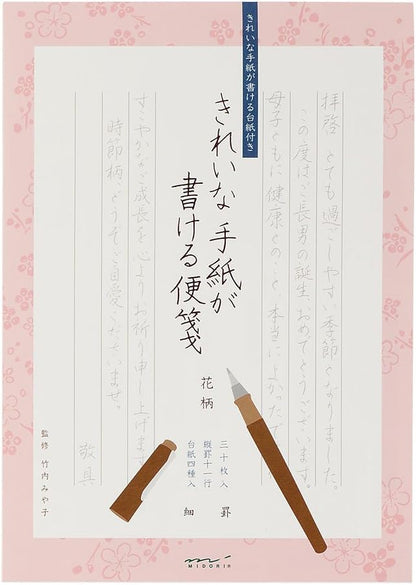 きれいな手紙が書ける台紙付き
拝啓 とても過ごしやすい季節となりました。
この度はご長男の誕生、おめでとうございます。
母子ともに健康とのこと 本当によかったで
きれいな手紙が
書ける便箋
花柄
三十枚入
縦罫十一行
台紙四種入
細罫
すこやかなご成長を心よりお祈り申し上げます
時節柄、どうぞご自愛くださいませ。
敬具
監修 竹内みや子
MIDORI